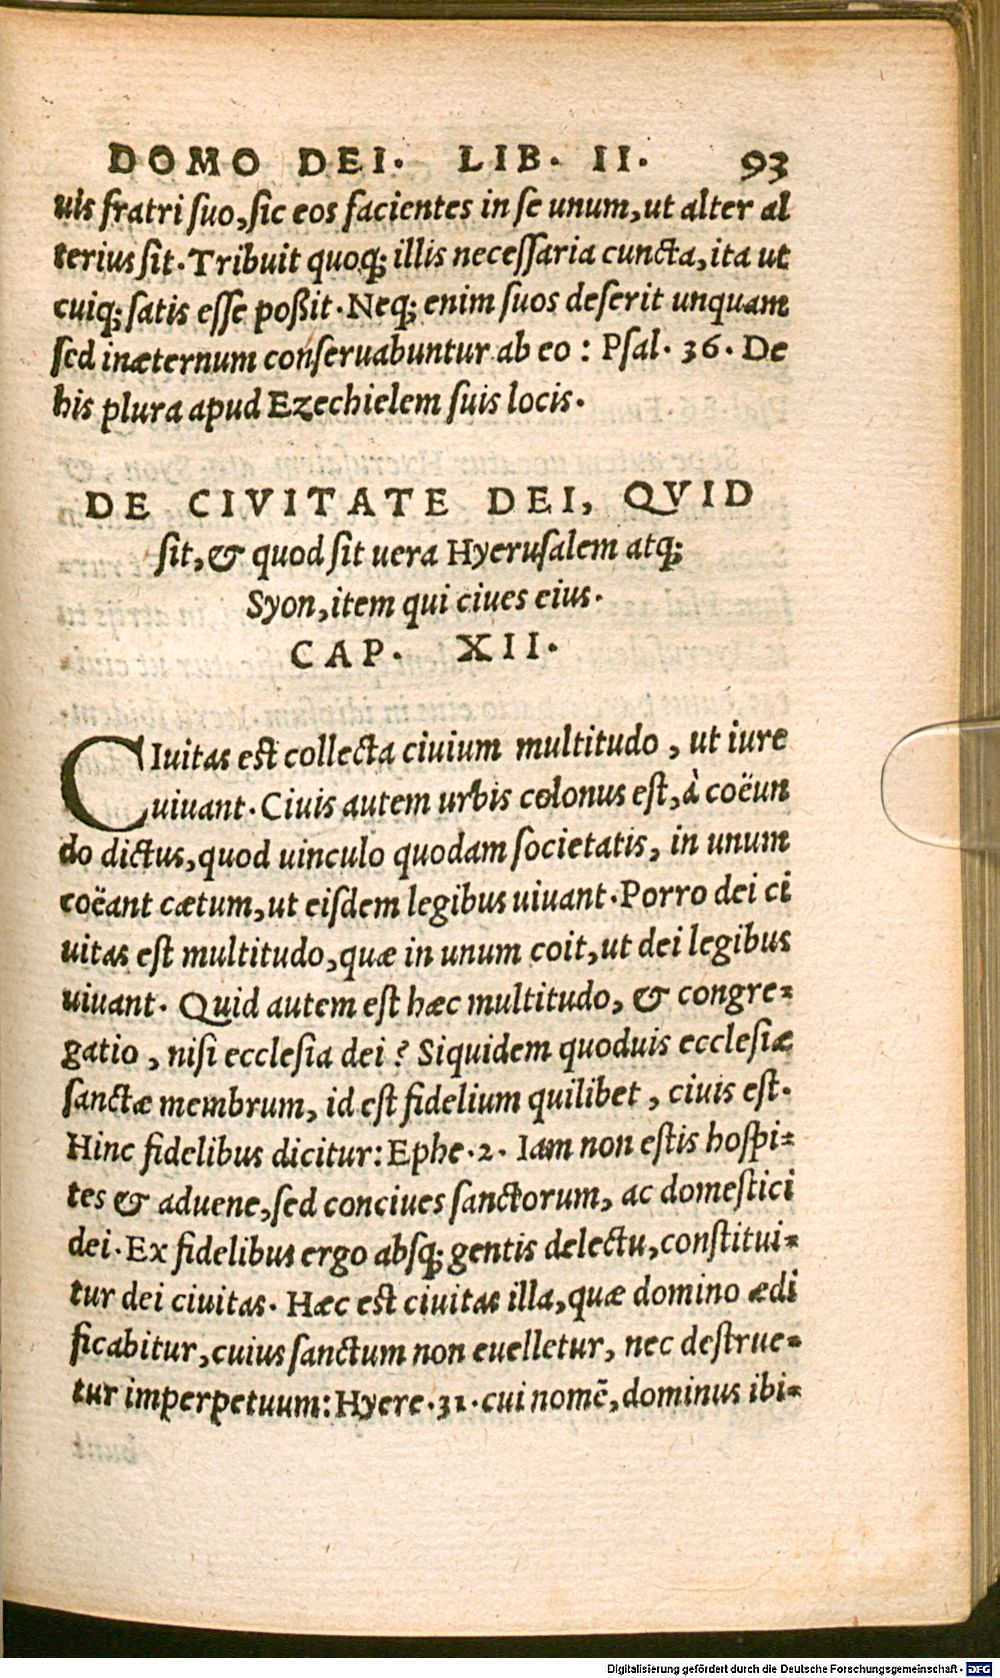 DOMO DEI. LIB. II. 93
uis fratri suo, sic eos facientes in se unum, ut alter al
terius sit. Tribuit quoq; illis necessaria cuncta, ita ut
cuiq; satis esse poßit. Neq; enim suos deserit unquam
sed inæternum conseruabuntur ab eo : Psal. 36. De
his plura apud Ezechielem suis locis.
DE CIVITATE DEI, QVID
sit, & quod sit uera Hyerusalem atq;
Syon, item qui ciues eius.
CAP. XII.
CIuitas est collecta ciuium multitudo, ut iure
uiuant. Ciuis autem urbis colonus est, à coëun
do dictus, quod uinculo quodam societatis, in unum
coëant cætum, ut eisdem legibus uiuant. Porro dei ci
uitas est multitudo, quæ in unum coit, ut dei legibus
uiuant. Quid autem est hæc multitudo, & congre-
gatio, nisi ecclesia dei? Siquidem quoduis ecclesiæ
sanctæ membrum, id est fidelium quilibet, ciuis est.
Hinc fidelibus dicitur: Ephe. 2. Iam non estis hospi-
tes & aduene, sed conciues sanctorum, ac domestici
dei. Ex fidelibus ergo absq; gentis delectu, constitui-
tur dei ciuitas. Hæc est ciuitas illa, quæ domino ædi
ficabitur, cuius sanctum non euelletur, nec destrue-
tur imperpetuum: Hyere. 31. cui nomē, dominus ibi-
Digitalisierung gefördert durch die Deutsche Forschungsgemeinschaft - DFG